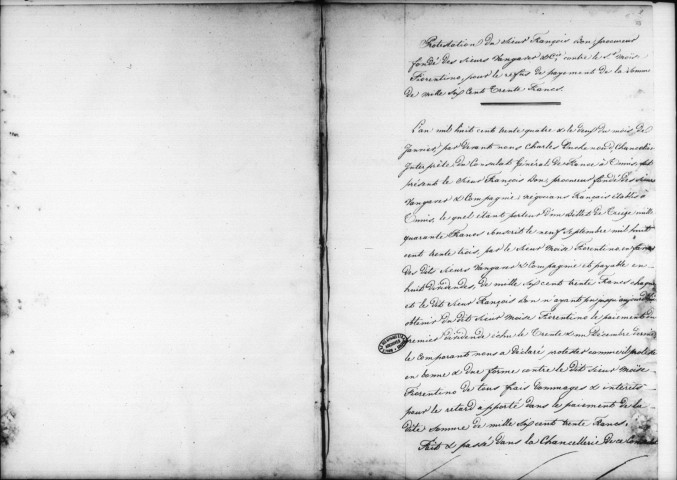 Protestation du Sieur François Bon procureur
fondé des Sieurs Vangaver & Cie, contre le Sr. Moïse
Fiorentino, pour le refus de payement de la somme
de mille six cent trente francs.
L'an mil huit cent trente quatre & le deux du mois de
Janvier, par devant nous Charles Chancelier
Interprète du Consulat Général de France à Tunis, fut
présent le Sieur François Bon, procureur fondé des Sieurs
Vangaver & Compagnie, négocians français établis à
Tunis, le quel étant porteur d'un Billet de Treize mille
quarante francs souscrit le neuf Septembre mil huit
cent trente trois, par le Sieur Moïse Fiorentino, en faveur
des dits Sieurs Vangaver & Compagnie et payable en
huit dividendes, de mille six cent trente francs chaque
et le dit Sieur François Bon n'ayant pu jusqu'aujourd'hui
obtenir du dit Sieur Moïse Fiorentino le paiement du
premier dividende échu le Trente & un Décembre dernier
le comparant nous a déclaré protester comme il proteste
en bonne & due forme contre le dit Sieur Moïse
Fiorentino de tous frais dommages & intérêts
pour le retard apporté dans le paiement de la
dite somme de mille six cent trente francs.
Fait & passé dans la Chancellerie de ce Consulat